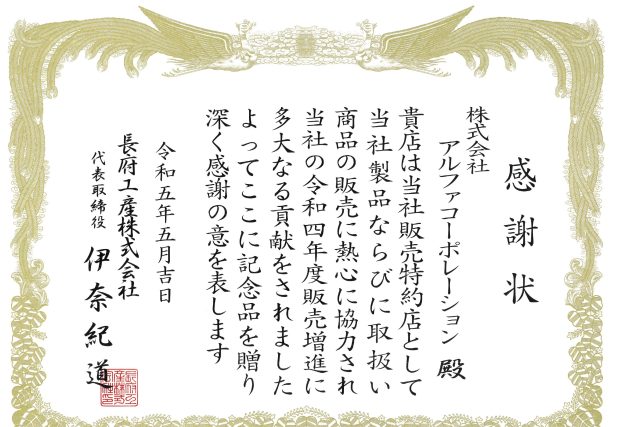 感謝状
株式会社
アルファコーポレーション 殿
貴店は当社販売特約店として
当社製品ならびに取扱い
商品の販売に熱心に協力され
当社の令和四年度販売増進に
多大なる貢献をされました
よってここに記念品を贈り
深く感謝の意を表します
令和五年五月吉日
長府工産株式会社
代表取締役 伊奈紀道